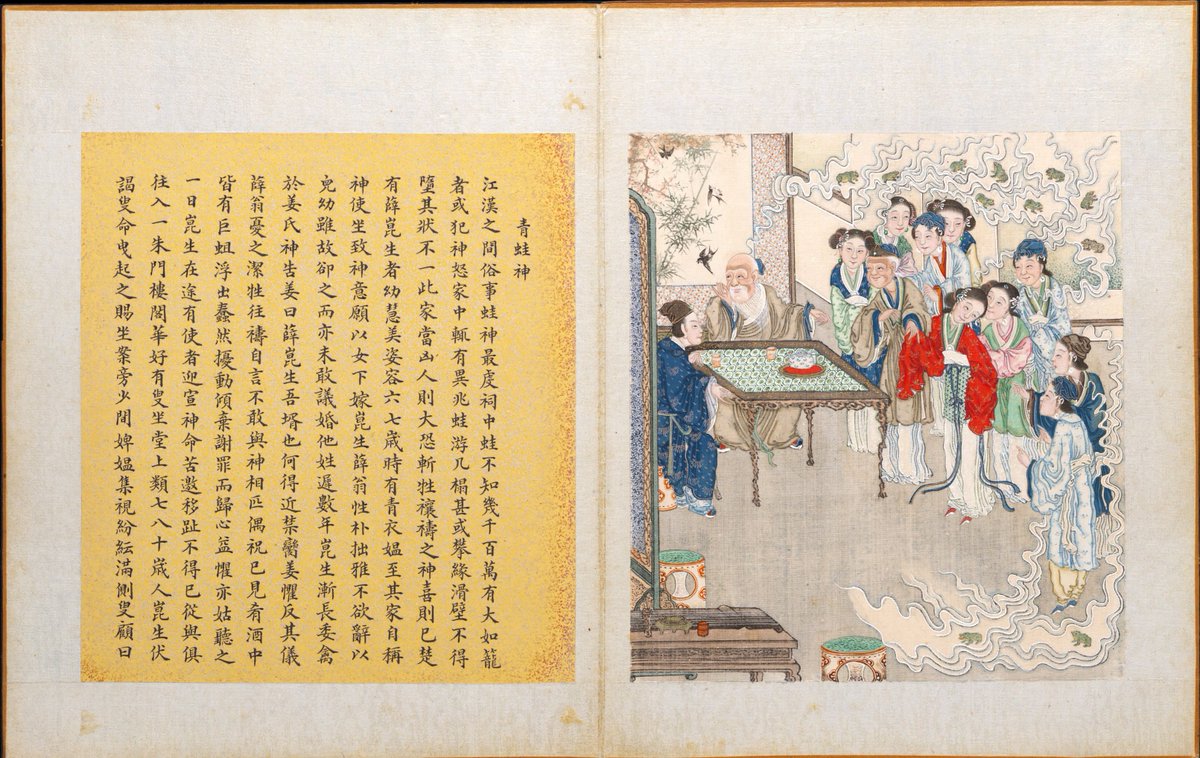 青蛙神
江漢之間俗事蛙神最虔祠中蛙不知幾千百萬有大如籠
者或犯神怒家中輒有異兆蛙游几榻甚或攀緣滑壁不得
墮其狀不一此家當凶人則大恐斬牲禳禱之神喜則已楚
有薛崑生者幼慧美姿容六七歲時有青衣媼至其家自稱
神使坐致神意願以女下嫁崑生薛翁性朴拙雅不欲辭以
兒幼雖故卻之而亦未敢議婚他姓遲數年崑生漸長委禽
於姜氏神告姜曰薛崑生吾壻也何得近禁臠姜懼反其儀
薛翁憂之潔牲往禱自言不敢與神相匹偶祝已見肴酒中
皆有巨蛆浮出蠢然擾動傾棄謝罪而歸心益懼亦姑聽之
一日崑生在途有使者迎宣神命苦邀移趾不得已從與俱
往入一朱門樓閣華好有叟坐堂上類七八十歲人崑生伏
謁叟命曳起之賜坐案旁少間婢媼集視紛紜滿側叟顧曰